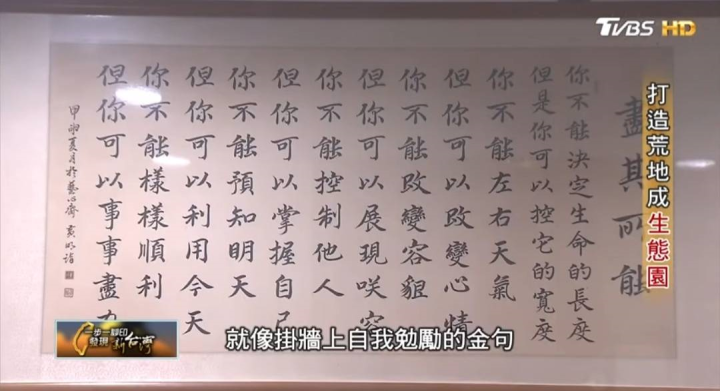 TVBS HD
打造荒地成生態園
盡其所能
你不能決定生命的長度
但是你可以控它的寬度
你不能左右天氣
但你可以改變心情
你不能改變容貌
但你可以展現咲容
你不能控制他人
但你可以掌握自己
你不能預知明天
但你可以利用今天
你不能樣樣順利
但你可以事事盡力
夏月於藝心齋
一步一腳印
發現新台灣
就像掛牆上自我勉勵的金句